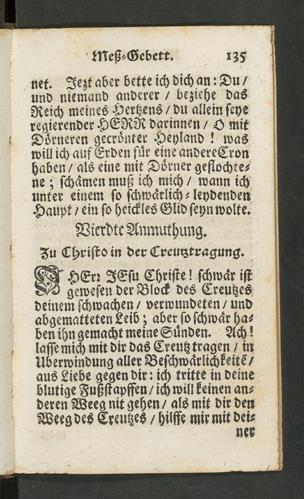 Meß-Gebett. 135
net. Jezt aber bette ich dich an: Du/
und niemand anderer / beziehe das
Reich meines Hertzens / du allein seye
regierender HERR darinnen / O mit
Dörneren gecrönter Heyland! was
will ich auf Erden für eine andere Cron
haben / als eine mit Dörner geflochte-
ne; schämen muß ich mich / wann ich
unter einem so schwärlich-leydenden
Haupt / ein so heickles Glid seyn wolte.
Vierdte Anmuthung.
Zu Christo in der Creutztragung.
O HErr JEsu Christe! schwär ist
gewesen der Block des Creutzes
deinem schwachen / verwundeten / und
abgematteten Leib; aber so schwär ha-
ben ihn gemacht meine Sünden. Ach!
lasse mich mit dir das Creutz tragen / in
Uberwindung aller Beschwärlichkeitē/
aus Liebe gegen dir: ich tritte in deine
blutige Fußstapffen / ich will keinen an-
deren Weeg nit gehen / als mit dir den
Weeg des Creutzes / hilffe mir mit dei-
ner